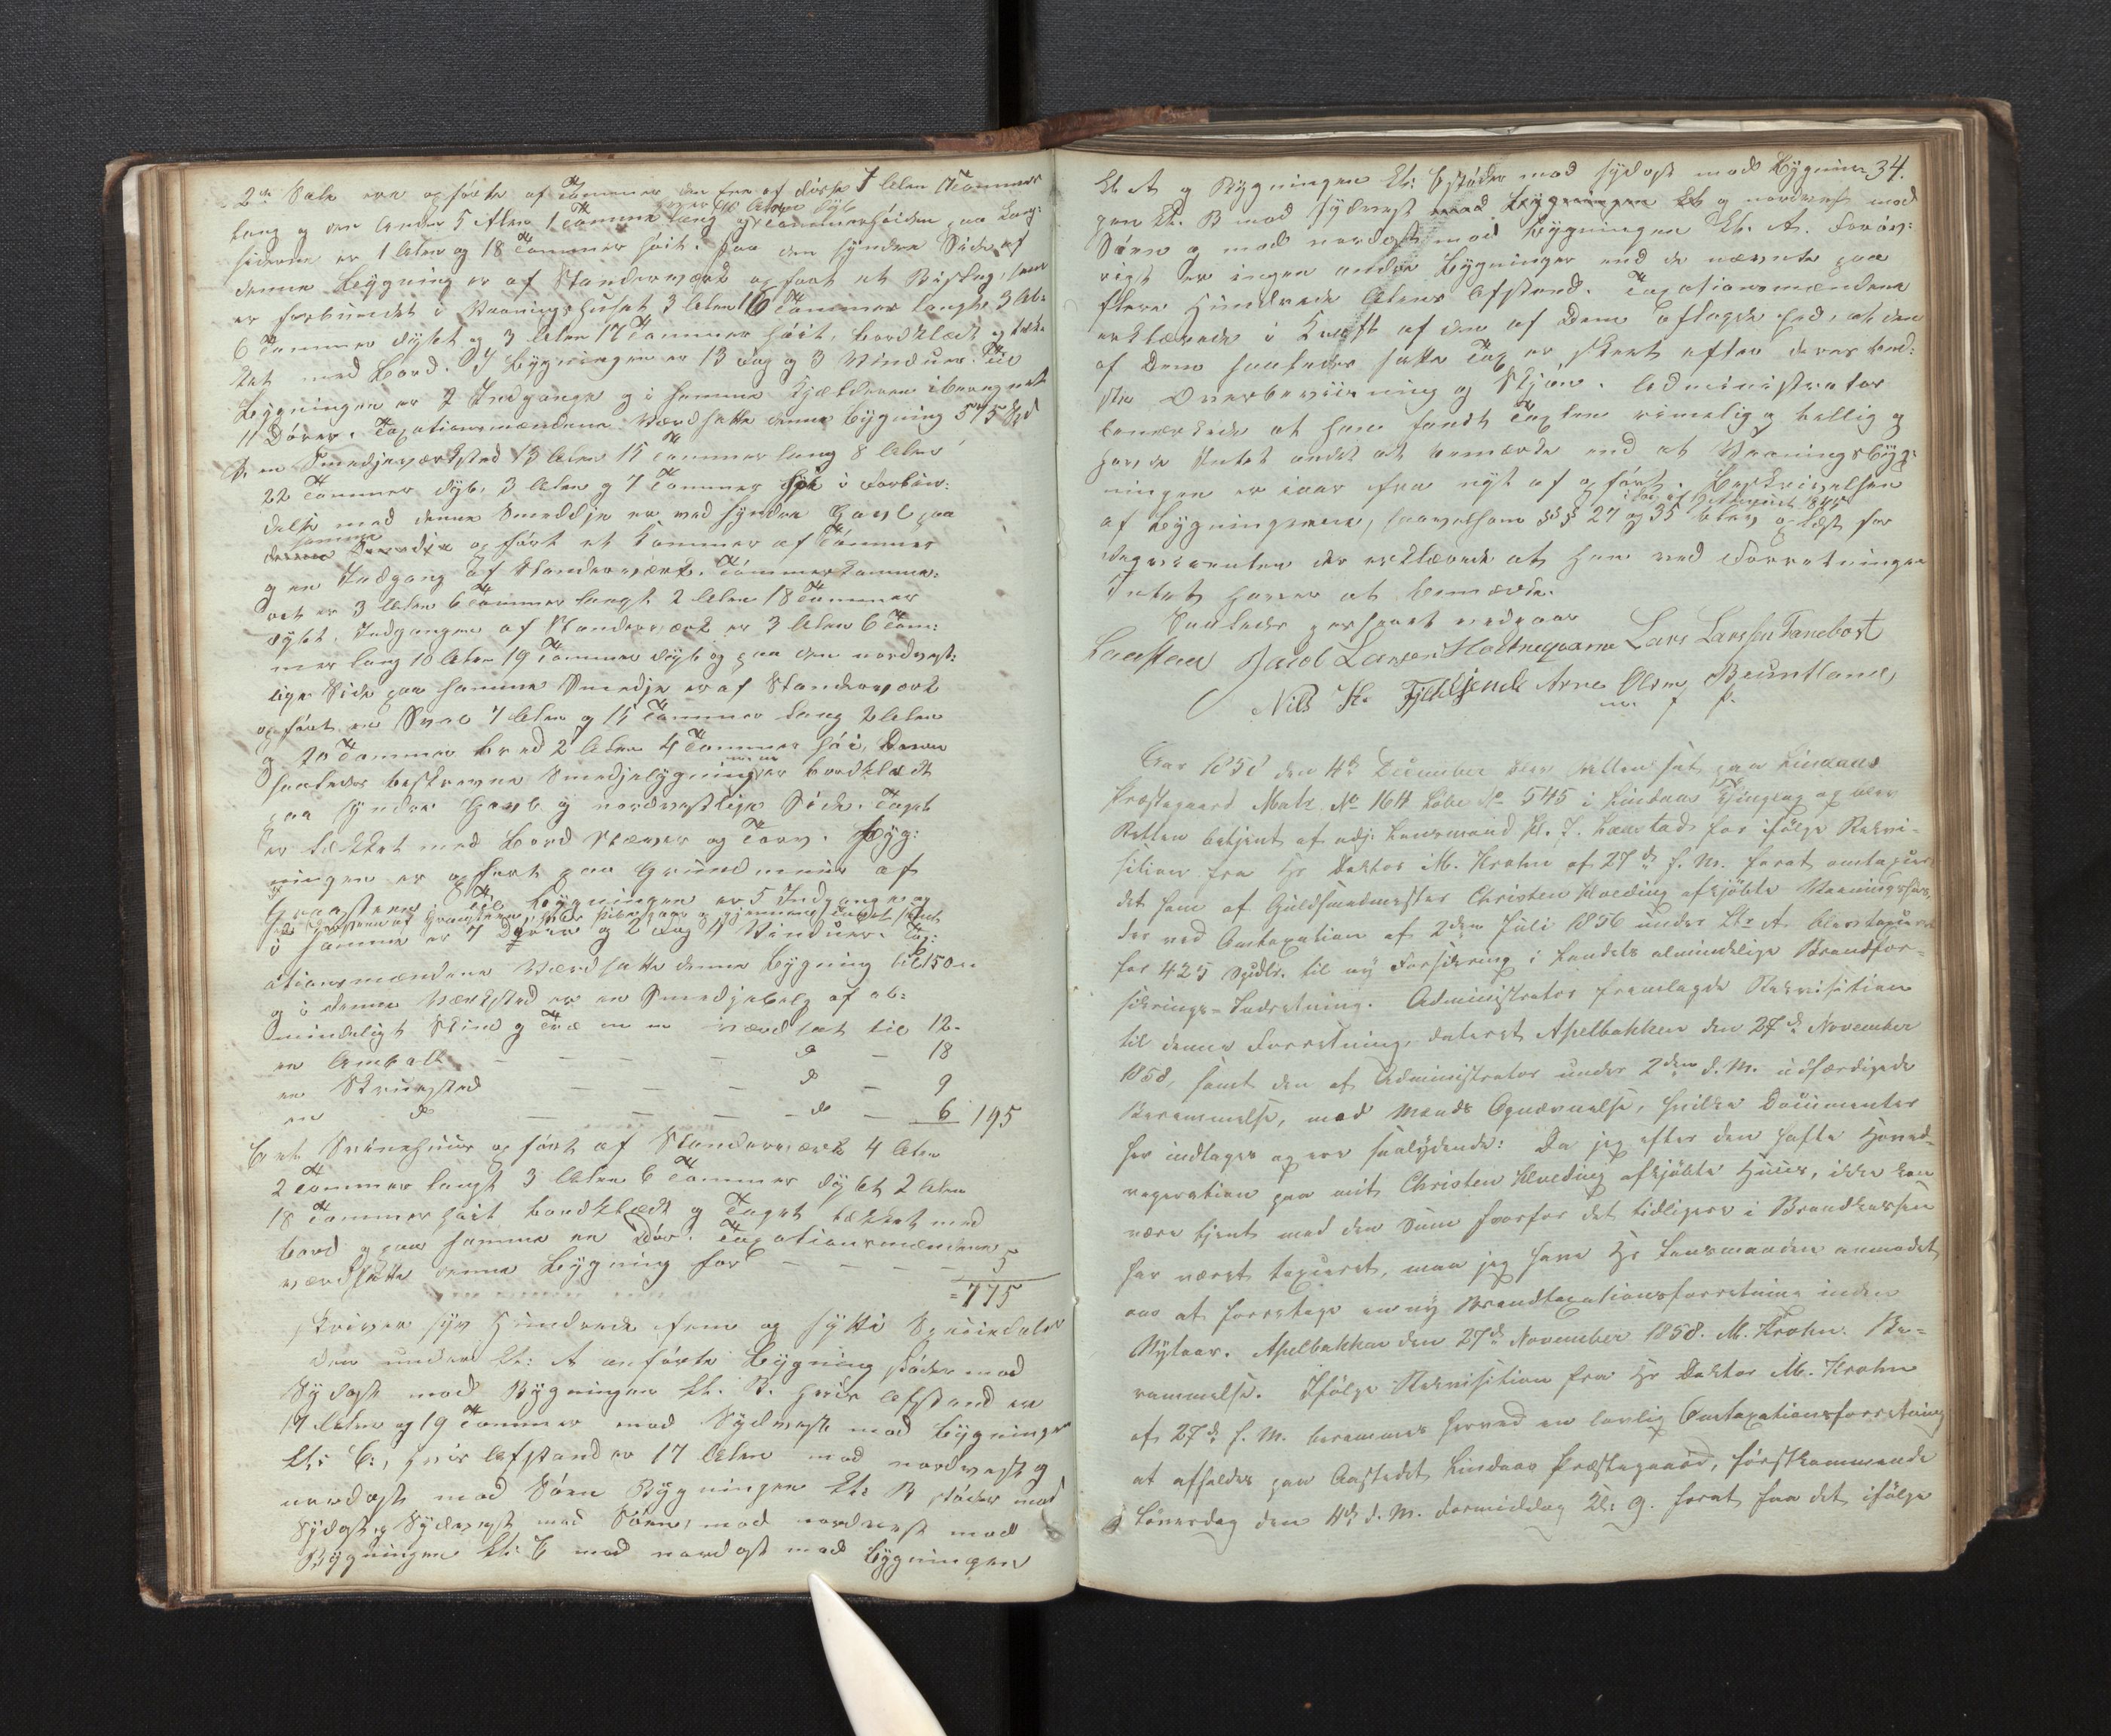 2de Sale ere opførte af Tømmer den ene af disse 7 Alen Tommer
lang og den anden 5 Alen 1 Tomme lang og Tømmerhøiden paa Lang:
siderne er 1 Alen og 18 Tommer høit. Paa den søndre Side af
denne Bygning er af Standerværk opført et Bislag, som
er forbundet i Vaaningshuset 3 Alen 16 Tommer langt 3 Al:
6 Tommer dybt og 3 Alen 17 Tommer høit, bordklædt og tæk-
ket med Bord. I Bygningen er 13 Fag og 3 Vinduer. Til
Bygningen er 2 Indgange og i samme Kjælderen iberegnet
11 Døre. Taxationsmændene Værdsatte denne Bygning 575 Spd
B. en Smedjeværksted 13 Alen 15 Tommer lang 8 Alen
22 Tommer dyb, 3 Alen og 7 Tommer høi i Forbin:
delse med denne Smedje er ved søndre Gavl paa
samme
denne Smedje opført et Kammer af Tømmer
og en Indgang af Standerværk. Tømmerkamme:
ret er 3 Alen 6 Tommer langt 2 Alen 18 Tommer
dybt. Indgangen af Standerværk er 3 Alen 6 Tom:
mer lang 10 Alen 19 Tommer dyb og paa den nordvest:
lige Side paa samme Smedje er af Standerværk
opført en Sval 7 Alen og 15 Tommer lang 2 Alen
og 20 Tommer bred 2 Alen 4 Tommer høi, Denne
saaledes beskrevne Smedjebygning er bordklædt
paa søndre Gavl og nordvestlige Side. Taget
er tækket med Bord Næver og Torv. Byg:
ningen er opført paa Grundmuur af
Graasteen. Til Bygningen er 5 Indgange og
i samme er 7 Døre og 2 Fag Vinduer. Tax:
ationsmændene Værdsatte denne Bygning til 150
og i denne Værksted er en Smedjebelg af al:
mindeligt Skind og Træ værdsat til 12
en Ambolt — — — — do — 18
en Skruested — — — do — 9
en do — — — do — 6 195
C. et Svinehuus opført af Standerværk 4 Alen
2 Tommer langt 3 Alen 6 Tommer dybt 2 Alen
18 Tommer høit bordklædt og Taget tækket med
bord og paa samme en Dør. Taxationsmændene
værdsatte denne Bygning for — — — — 5
= 775
skriver syv Hundrede fem og sytti Speciedaler
Den under Lt: A anførte Bygning støder mod
Sydost mod Bygningen Lt. B. hvis Afstand er
17 Alen og 19 Tommer mod Sydvest mod Bygningen
Lt: C:, hvis Afstand er 17 Alen mod nordvest og
nordost mod Søen Bygningen Lt: B støder mod
Sydost og Sydvest mod Søen, mod nordvest mod
Bygningen Lt: C mod nordost mod Bygningen
34.
Lt A og Bygningen Lt: C støder mod sydost mod Bygnin
gen Lt. B mod sydvest mod Bygningen Lt og nordvest mod
Søen og mod nordost mod Bygningen Lt. A. Forøv:
rigt er ingen andre Bygninger end de nævnte paa
flere Hundrede Alens Afstand. Taxationsmændene
erklærede i Kraft af den af Dem aflagde Eed, at den
af Dem saaledes satte Tax er skeet efter deres bed:
ste Overbeviisning og Skjøn. Administrator
bemærkede at han fandt Taxten rimelig og billig og
havde Intet andet at bemærke end at Vaaningsbyg:
ningen er iaar fra nyt af opført. Beskrivelsen
i Lov af August 1845
af Bygningerne, saavelsom §§ 27 og 35 blev oplæst for
Reqvirenten der erklærede at han ved Forretningen
Intet havde at bemærke.
Saaledes passeret vedgaar
Laastad Jacob Larsen Hodneqvamme Lars Larssen Fanebost
Nils H. Fjeldsende Arne Olsen Bruntland,
m. f. P.
Aar 1858 den 4de December blev Retten sat paa Lindaas
Præstegaard Matr. No 164 Løbe No 545 i Lindaas Thinglag og blev
Retten betjent af adj: Lensmand H. J. Laastad for ifølge Rekvi-
sition fra Hr Doktor M. Krohn af 27de f. M. forat omtaxere
det ham af Guldsmedmester Christen Kolding afkjøbte Vaaningshus,
der ved Omtaxation af 2den Juli 1856 under Ltr A blev taxeret
for 425 Spdlr. til ny Forsikring i Landets almindelige Brandfor-
sikrings-Indretning. Administrator fremlagde Rekvisition
til denne Forretning, dateret Apelbakken den 27de November
1858, samt den af Administrator under 2den d. M. udfærdigede
Berammelse, med Mænds Opnævnelse, hvilke Documenter
her indtages og ere saalydende: Da jeg efter den hafte Hoved-
reparation paa mit Christen Kolding afkjøbte Huus, ikke kan
være tjent med den Sum hvorfor det tidligere i Brandkassen
har været taxeret, maa jeg have Hr Lensmanden anmodet
om at foretage en ny Brandtaxationsforretning inden
Nytaar. Apelbakken den 27de November 1858. M. Krohn. Be-
rammelse. Ifølge Rekvisition fra Hr Doktor M. Krohn
af 27de f. M. berammes herved en lovlig Omtaxationsforretning
at afholdes paa Aastedet Lindaas Præstegaard, førstkommende
Løverdag den 4de d. M. Formiddag Kl: 9. forat faa det ifølge